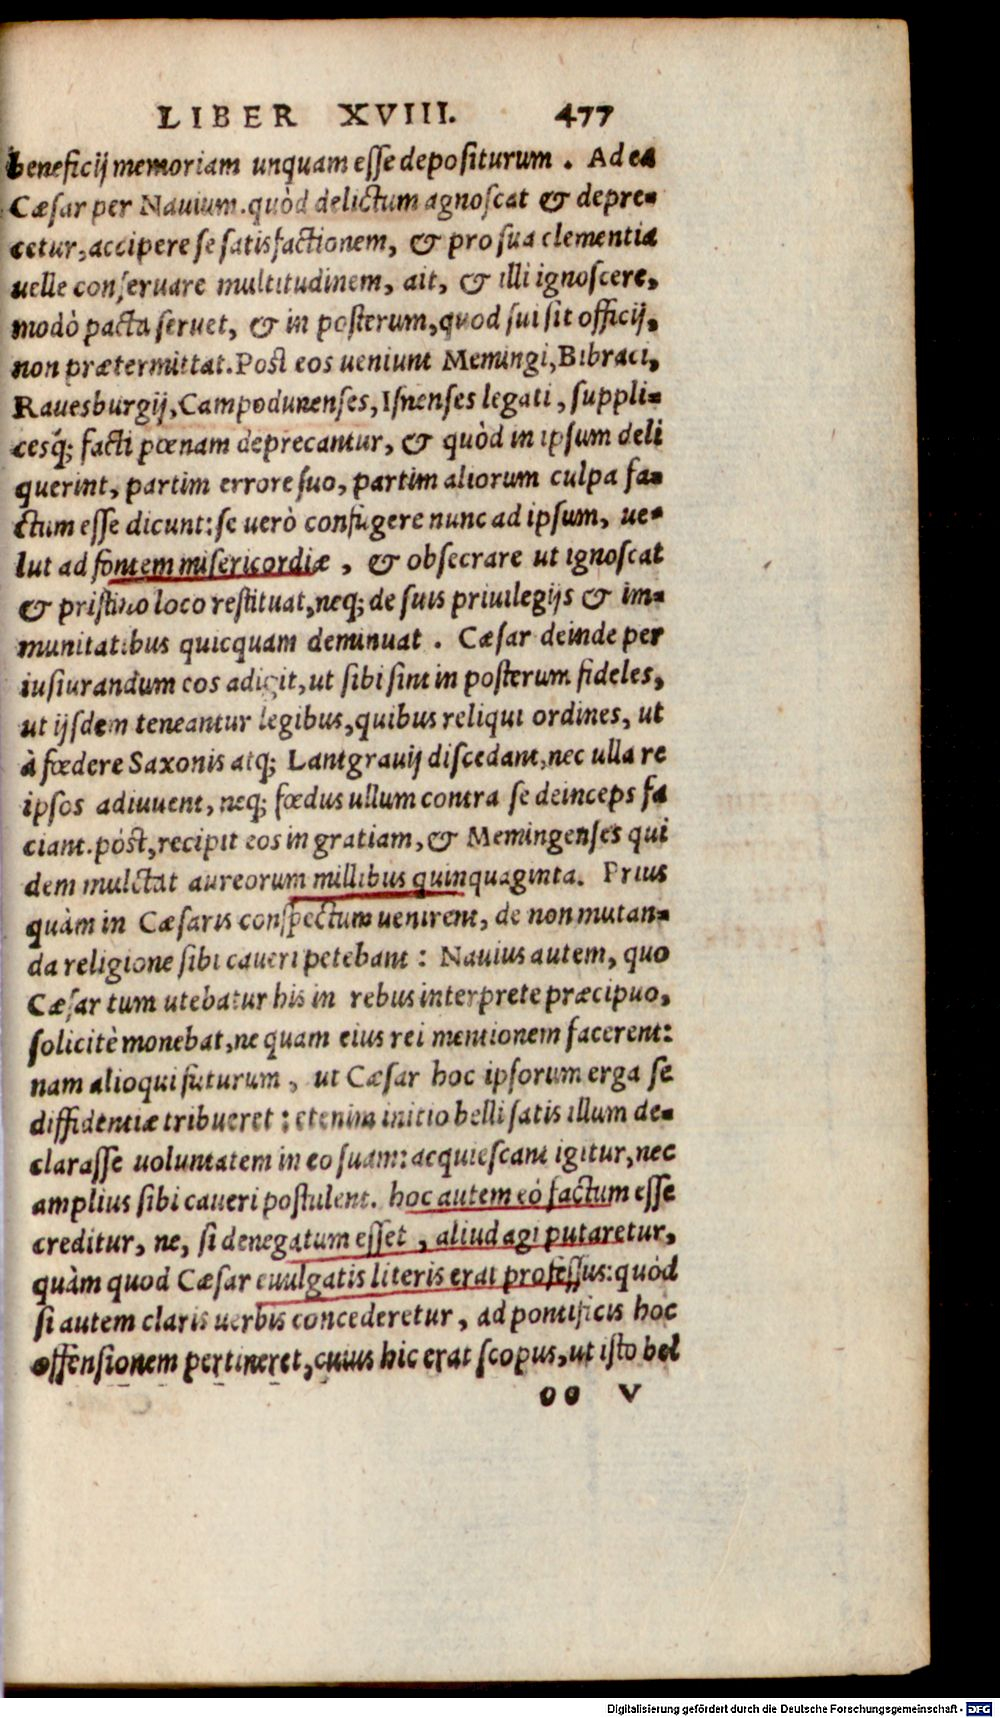 LIBER XVIII. 477
beneficij memoriam unquam esse depositurum. Ad ea
Cæsar per Nauium. quòd delictum agnoscat & depre-
cetur, accipere se satisfactionem, & pro sua clementia
uelle conseruare multitudinem, ait, & illi ignoscere,
modò pacta seruet, & in posterum, quod sui sit officij,
non prætermittat. Post eos ueniunt Memingi, Bibraci,
Rauesburgij, Campodunenses, Isnenses legati, suppli-
cesq́; facti pœnam deprecantur, & quòd in ipsum deli
querint, partim errore suo, partim aliorum culpa fa-
ctum esse dicunt: se uerò confugere nunc ad ipsum, ue-
lut ad fontem misericordiæ, & obsecrare ut ignoscat
& pristino loco restituat, neq; de suis priuilegijs & im-
munitatibus quicquam deminuat. Cæsar deinde per
iusiurandum eos adigit, ut sibi sint in posterum fideles,
ut ijsdem teneantur legibus, quibus reliqui ordines, ut
à fœdere Saxonis atq; Lantgrauij discedant, nec ulla re
ipsos adiuuent, neq; fœdus ullum contra se deinceps fa
ciant. pòst, recipit eos in gratiam, & Memingenses qui
dem mulctat aureorum millibus quinquaginta. Prius
quàm in Cæsaris conspectum uenirent, de non mutan-
da religione sibi caueri petebant: Nauius autem, quo
Cæsar tum utebatur his in rebus interprete præcipuo,
solicitè monebat, ne quam eius rei mentionem facerent:
nam alioqui futurum, ut Cæsar hoc ipsorum erga se
diffidentiæ tribueret: etenim initio belli satis illum de-
clarasse uoluntatem in eo suam: acquiescant igitur, nec
amplius sibi caueri postulent. hoc autem eò factum esse
creditur, ne, si denegatum esset, aliud agi putaretur,
quàm quod Cæsar euulgatis literis erat professus: quòd
si autem claris uerbis concederetur, ad pontificis hoc
offensionem pertineret, cuius hic erat scopus, ut isto bel
oo v
Digitalisierung gefördert durch die Deutsche Forschungsgemeinschaft - DFG